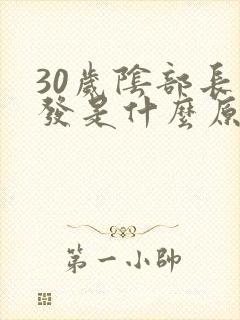 30歲陰部長
發是什麼原
第一小帥